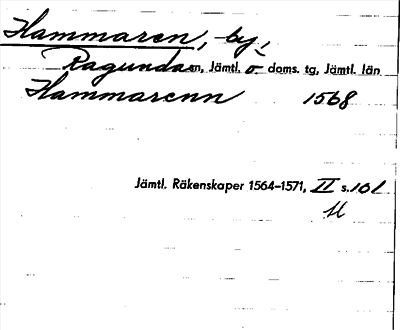 Hammaren, by,
Ragunda sn, Jämtl. ö. doms. tg, Jämtl. län
Hammarenn 1568
Jämtl. Räkenskaper 1564–1571, II s. 101